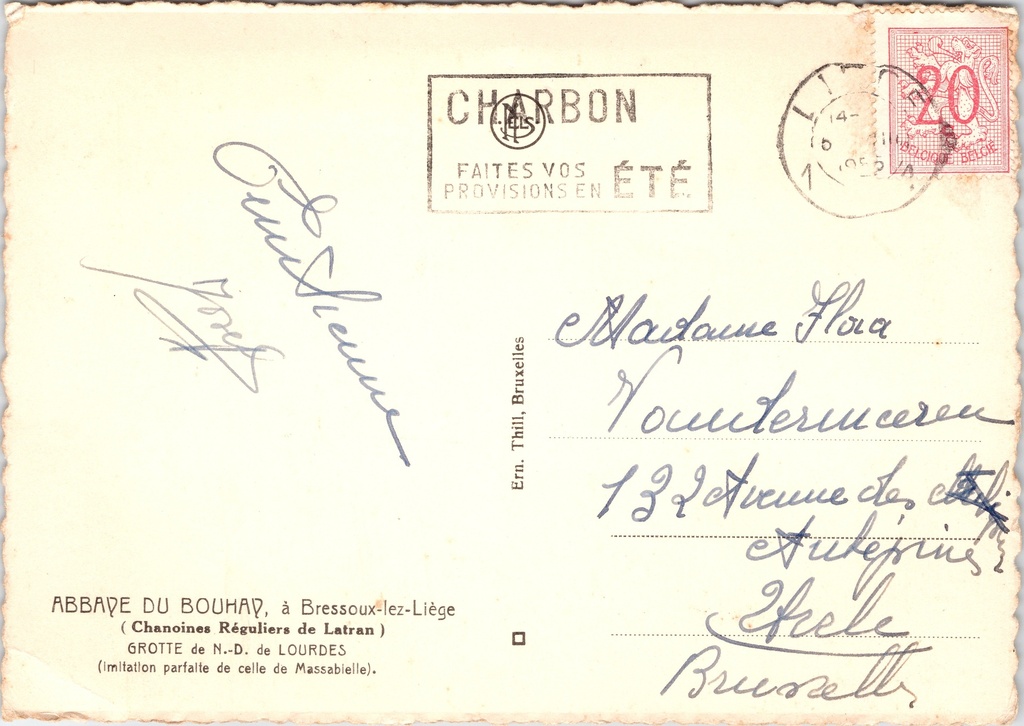 CHARBON
NELS
FAITES VOS
PROVISIONS EN ÉTÉ
LIEGE
14-
1952
20
BELGIQUE BELGIË
Etienne
Josef
Madame Flora
Vandermeeren
132 Avenue des
Aubépines
Uccle
Bruxelles
Ern. Thill, Bruxelles
ABBAYE DU BOUHAY, à Bressoux-lez-Liège
(Chanoines Réguliers de Latran)
GROTTE de N.-D. de LOURDES
(Imitation parfaite de celle de Massabielle).